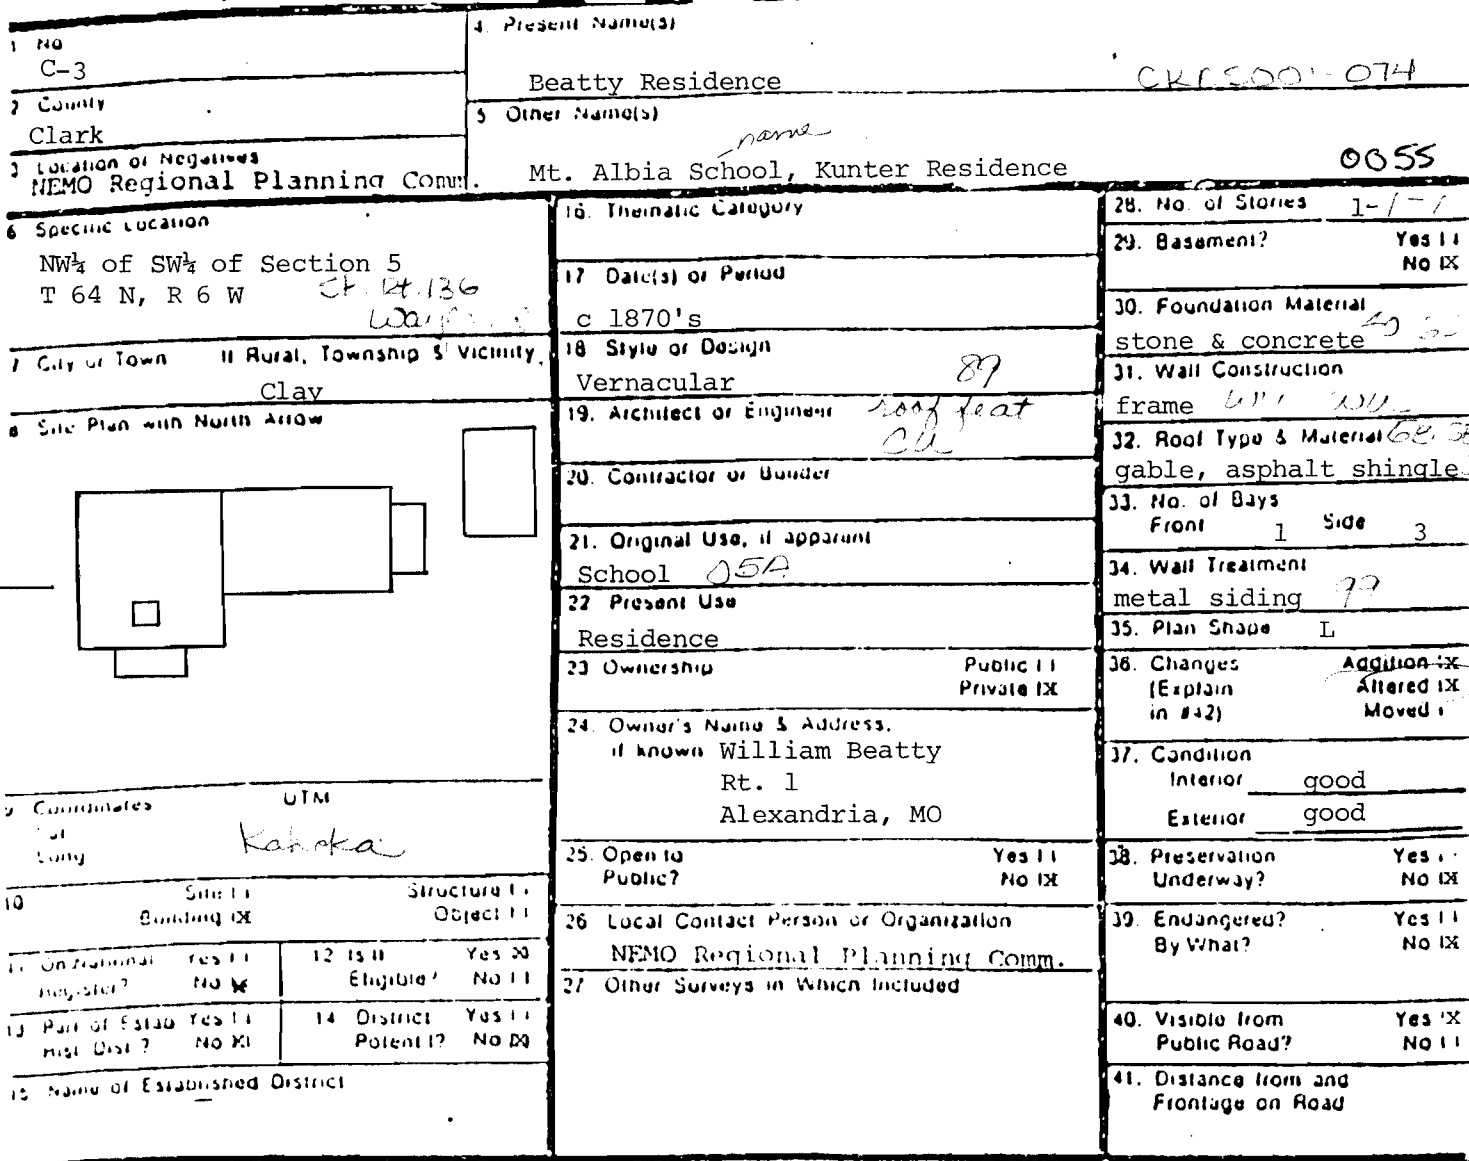 1 No
C-3
2 County
Clark
3 Location of Negatives
NEMO Regional Planning Comm.
4. Present Name(s)
Beatty Residence
CKCS001-074
5 Other Name(s)
name
Mt. Albia School, Kunter Residence
0055
6 Specific Location
NW¼ of SW¼ of Section 5
T 64 N, R 6 W St. Rt. 136
7 City or Town If Rural, Township & Vicinity
Clay
8 Site Plan with North Arrow
9 Coordinates UTM
Lat
Long
Kahoka
10 Site | |
Structure | |
Building |X
Object | |
11 On National Register? Yes | | No X
12 Is It Eligible? Yes X No | |
13 Part of Estab Hist. Dist.? Yes | | No X|
14 District Potent'l? Yes | | No X
15 Name of Established District
16. Thematic Category
17 Date(s) or Period
c 1870's
18 Style or Design
Vernacular 89
19. Architect or Engineer roof feat
20. Contractor or Builder
21. Original Use, if apparent
School 05A
22 Present Use
Residence
23 Ownership Public | |
Private |X
24. Owner's Name & Address,
if known William Beatty
Rt. 1
Alexandria, MO
25. Open to Public? Yes | | No |X
26 Local Contact Person or Organization
NEMO Regional Planning Comm.
27 Other Surveys in Which Included
28. No. of Stories 1-
29. Basement? Yes | |
No |X
30. Foundation Material
stone & concrete
31. Wall Construction
frame
32. Roof Type & Material
gable, asphalt shingle
33. No. of Bays
Front 1 Side 3
34. Wall Treatment
metal siding 99
35. Plan Shape L
36. Changes Addition |X
(Explain Altered |X
in #42) Moved |
37. Condition
Interior good
Exterior good
38. Preservation Underway? Yes | No |X
39. Endangered? Yes | |
By What? No |X
40. Visible from Yes |X
Public Road? No | |
41. Distance from and
Frontage on Road